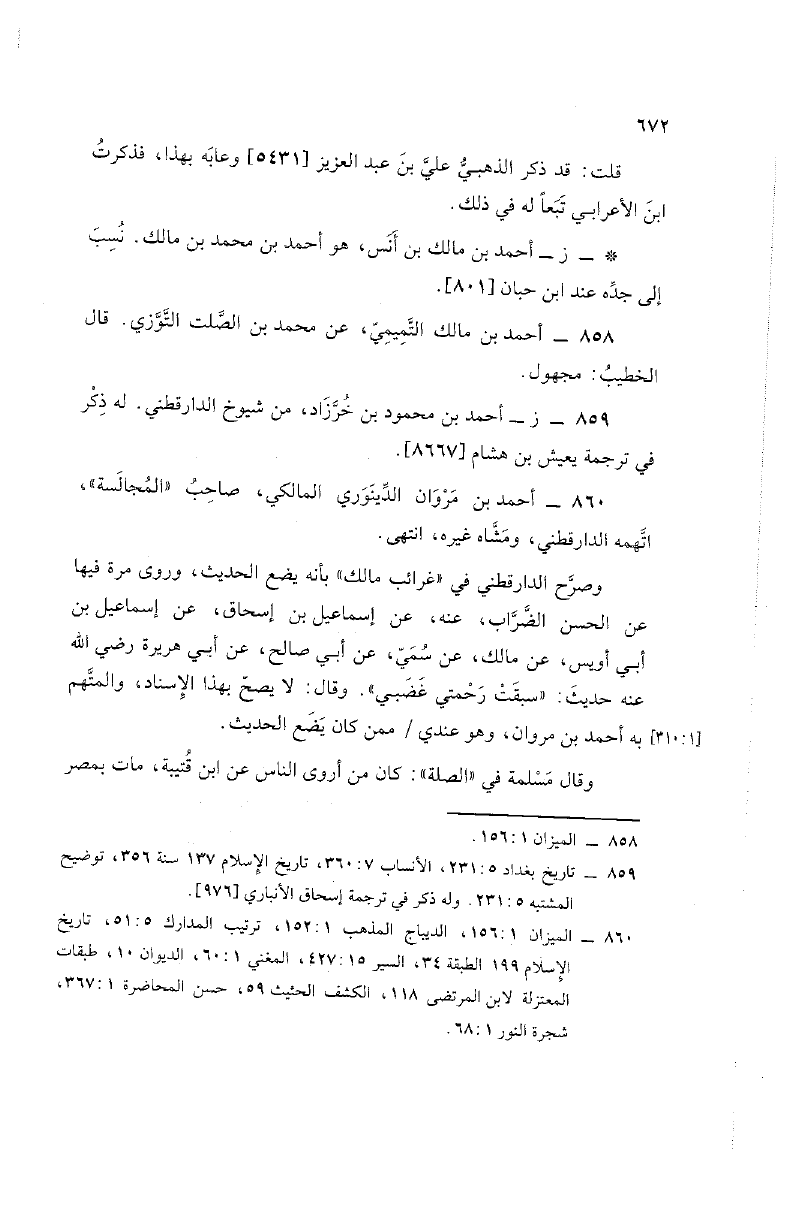 ٦٧٢
قلت: قد ذكر الذهبيُّ عليَّ بنَ عبد العزيز [٥٤٣١] وعابَه بهذا، فذكرتُ
ابنَ الأعرابـي تَبَعاً له في ذلك.
* ــ ز ــ أحمد بن مالك بن أَنَس، هو أحمد بن محمد بن مالك. نُسِبَ
إلى جدِّه عند ابن حبان [٨٠١].
٨٥٨ ــ أحمد بن مالك التَّمِيمِيّ، عن محمد بن الصَّلت التَّوَّزي. قال
الخطيبُ: مجهول.
٨٥٩ ــ ز ــ أحمد بن محمود بن خُرَّزَاد، من شيوخ الدارقطني. له ذِكْر
في ترجمة يعيش بن هشام [٨٦٦٧].
٨٦٠ ــ أحمد بن مَرْوَان الدِّينَوَري المالكي، صاحِبُ «المُجالَسة»،
اتَّهمه الدارقطني، ومَشَّاه غيره، انتهى.
وصرَّح الدارقطني في «غرائب مالك» بأنه يضع الحديث، وروى مرة فيها
عن الحسن الضَّرَّاب، عنه، عن إسماعيل بن إسحاق، عن إسماعيل بن
أبـي أويس، عن مالك، عن سُمَيّ، عن أبـي صالح، عن أبـي هريرة رضي الله
عنه حديثَ: «سبقَتْ رَحْمتي غَضَبـي». وقال: لا يصحّ بهذا الإِسناد، والمتَّهم
[٣١٠:١] به أحمد بن مروان، وهو عندي / ممن كان يَضَع الحديث.
وقال مَسْلمة في «الصلة»: كان من أروى الناس عن ابن قُتيبة، مات بمصر
٨٥٨ ــ الميزان ١:١٥٦.
٨٥٩ ــ تاريخ بغداد ٥:٢٣١، الأنساب ٧:٣٦٠، تاريخ الإِسلام ١٣٧ سنة ٣٥٦، توضيح
المشتبه ٥:٢٣١. وله ذكر في ترجمة إسحاق الأنباري [٩٧٦].
٨٦٠ ــ الميزان ١:١٥٦، الديباج المذهب ١:١٥٢، ترتيب المدارك ٥:٥١، تاريخ
الإِسلام ١٩٩ الطبقة ٣٤، السير ١٥:٤٢٧، المغني ١:٦٠، الديوان ١٠، طبقات
المعتزلة لابن المرتضى ١١٨، الكشف الحثيث ٥٩، حسن المحاضرة ١:٣٦٧،
شجرة النور ١:٦٨.